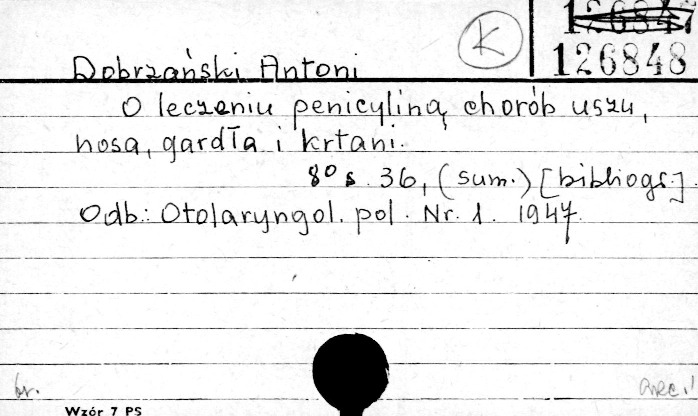 126847
K
126848
Dobrzański Antoni
O leczeniu penicyliną chorób uszu,
nosa, gardła i krtani.
8º s. 36, (sum.) [bibliogr.]
Odb.: Otolaryngol. pol. Nr. 1. 1947
br.
Wzór 7 PS